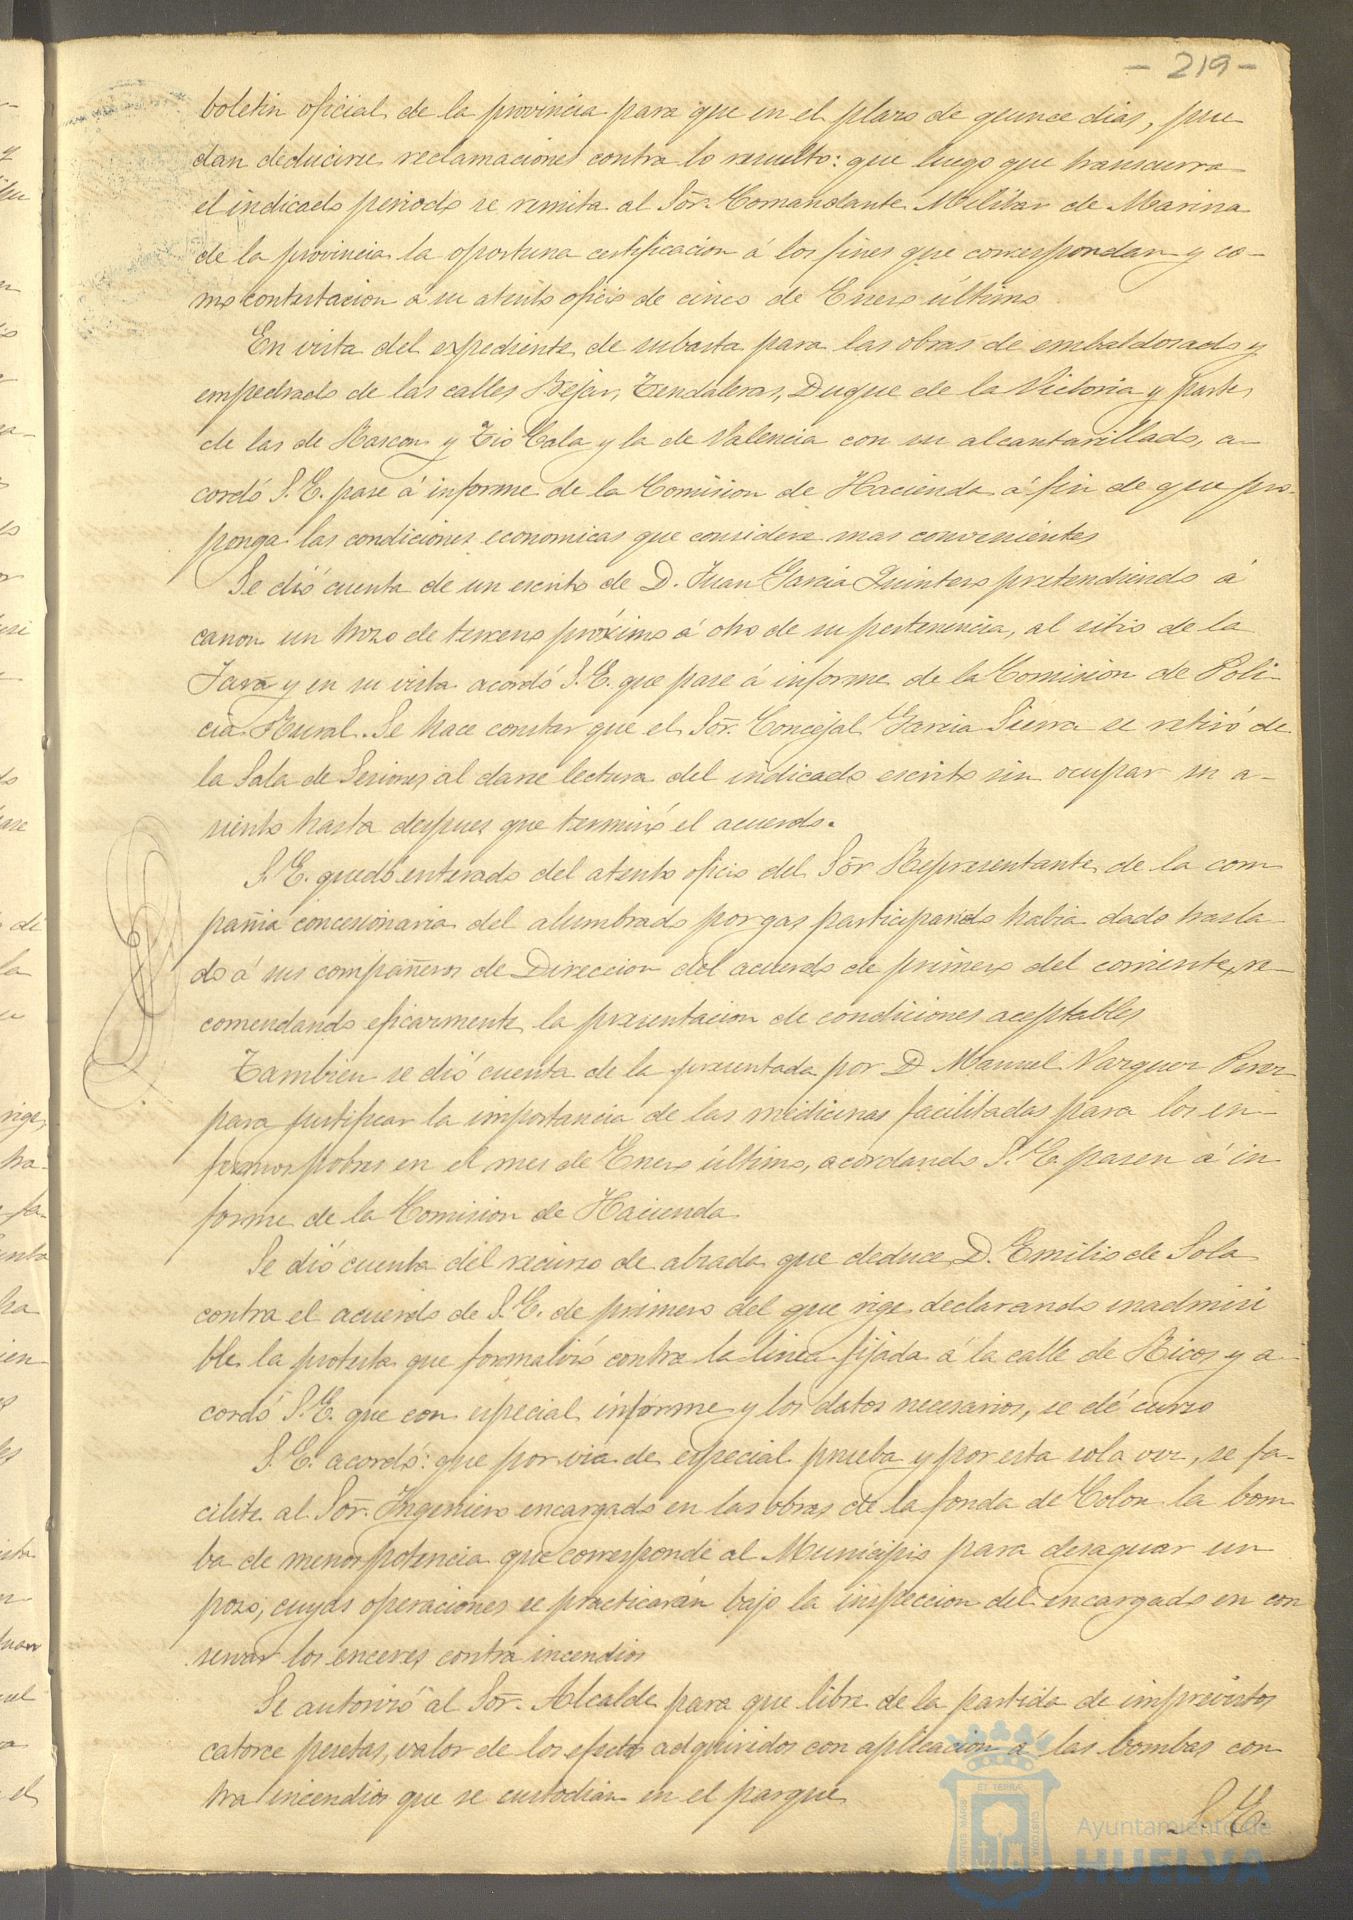 - 219 -
boletin oficial de la provincia para que en el plazo de quince dias, pue
dan deducirse reclamaciones contra lo resuelto: que luego que transcurra
el indicado periodo se remita al Sõr. Comandante Militar de Marina
de la provincia la oportuna certificacion á los fines que correspondan y co-
mo contestacion á su atento oficio de cinco de Enero último
En vista del expediente de subasta para las obras de embaldosado y
empedrado de las calles Bejar, Tendaleras, Duque de la Victoria y parte
de las de Rascon y Tio Cala y la de Valencia con su alcantarillado, a-
cordó S.E. pase á informe de la Comision de Hacienda á fin de que pro-
ponga las condiciones economicas que considere mas convenientes
Se dió cuenta de un escrito de D. Juan Garcia Quintero pretendiendo á
canon un trozo de terreno próximo á otro de su pertenencia, al sitio de la
Jara y en su vista acordó S.E. que pase á informe de la Comision de Poli-
cia Rural. Se hace constar que el Sõr. Concejal Garcia Sierra se retiró de
la Sala de Sesiones al darse lectura del indicado escrito sin ocupar su a-
siento hasta despues que terminó el acuerdo.
S.E. quedó enterado del atento oficio del Sõr Representante de la com
pañia concesionaria del alumbrado por gas participando habia dado trasla-
do á sus compañeros de Direccion del acuerdo de primero del corriente, re-
comendando eficazmente la presentacion de condiciones aceptables
Tambien se dió cuenta de la presentada por D Manuel Vazquez Perez
para justificar la importancia de las medicinas facilitadas para los en-
fermos pobres en el mes de Enero último, acordando S.E. pasen á in
forme de la Comision de Hacienda
Se dió cuenta del recurso de alzada que deduce D. Emilio de Sola
contra el acuerdo de S.E. de primero del que rige declarando inadmisi
ble la protesta que formalizó contra la linea fijada á la calle de Ricos y a-
cordó S.E. que con especial informe y los datos necesarios, se dé curso
S.E. acordó: que por via de especial prueba y por esta sola vez, se fa-
cilite al Sõr. Ingeniero encargado en las obras de la fonda de Colon la bom
ba de menor potencia que corresponde al Municipio para desaguar un
pozo, cuyas operaciones se practicarán bajo la inspeccion del encargado en con
servar los enceres contra incendios
Se autorizó al Sõr. Alcalde para que libre de la partida de imprevistos
catorce pesetas, valor de los efectos adquiridos con aplicacion á las bombas con
tra incendios que se custodian en el parque
S.E.
Ayuntamiento de
HUELVA